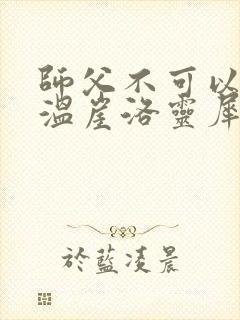 師父不可以
溫崖洛靈犀
於藍凌晨